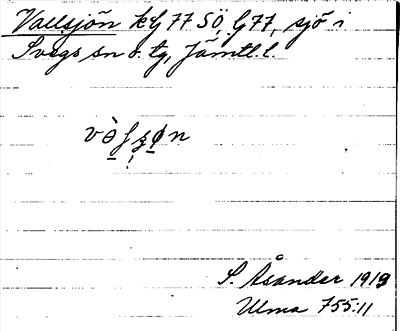 Vallsjön kG 77 SÖ, G77, sjö i
Svegs sn o. tg, Jämtl. l.
S. Åsander 1919
Ulma 755:11